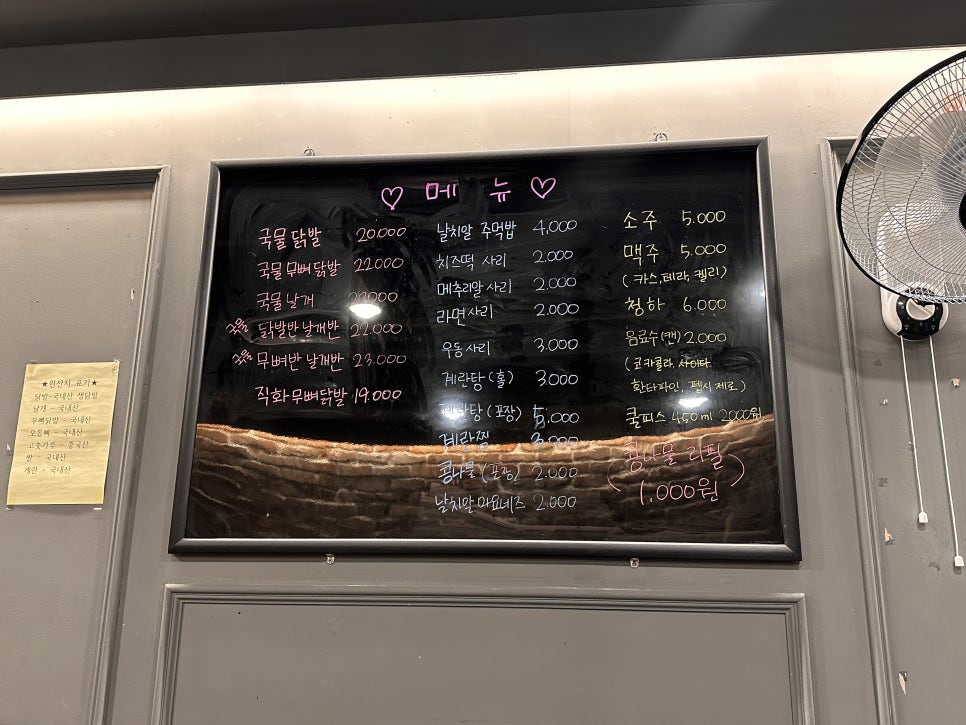 ♡ 메 뉴 ♡
국물 닭발 20.000
국물 무뼈 닭발 22.000
국물 날개
국물 닭발반 날개반 22.000
국물 무뼈반 날개반 23.000
직화 무뼈닭발 19.000
날치알 주먹밥 4.000
치즈떡 사리 2.000
메추리알 사리 2.000
라면사리 2.000
우동사리 3.000
계란탕 (홀) 3.000
계란탕 (포장) 5.000
계란찜 3.000
콩나물 (포장) 2.000
날치알 마요네즈 2.000
소주 5.000
맥주 5.000
( 카스, 테라, 켈리 )
청하 6.000
음료수 (캔) 2.000
( 코카콜라, 사이다
환타파인, 펩시 제로 )
쿨피스 450ml 2.000원
( 콩나물 리필
1.000원 )
★원산지 표기★
닭발-국내산 생닭발
날개 - 국내산
무뼈닭발 - 국내산
오돌뼈 - 국내산
고춧가루 - 중국산
쌀 - 국내산
계란 - 국내산